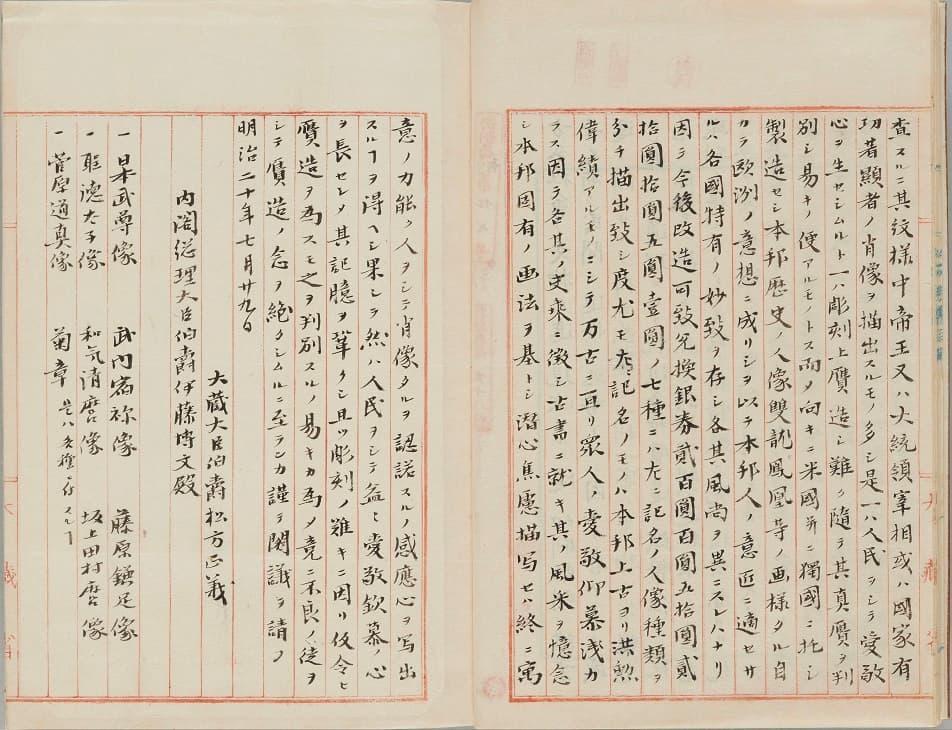 査スルニ其紋様中帝王又ハ大統領宰相或ハ國家有
功著顯者ノ肖像ヲ描出スルモノ多シ是一ハ人民ヲシテ愛敬
心ヲ生セシムルト一ハ彫刻上贋造シ難ク隨テ其真贋ヲ判
別シ易キノ便アルモノトス而メ向キニ米國并ニ獨國ニ托シ
製造セシ本邦歴史人像雙龍鳳凰等ノ画様タル自
カラ欧洲ノ意想ニ成リシヲ以テ本邦人ノ意匠ニ適セサ
ルハ各國特有ノ妙致ヲ存シ各其風尚ヲ異ニスレハナリ
因テ今後改造可致兌換銀券貳百圓百圓五拾圓貳
拾圓拾圓五圓壹圓ノ七種ニハ左ニ記名ノ人像種類ヲ
分チ描出致シ度尤モ左記名ノモノハ本邦上古ヨリ洪勲
偉績アルモノニシテ万古ニ亘リ衆人ノ愛敬仰慕淺カ
ラス因テ各其ノ史乘ニ徴シ古書ニ就キ其ノ風釆ヲ憶念
シ本邦固有ノ画法ヲ基トシ潜心焦慮描写セハ終ニ寓
意ノ力能ク人ヲシテ肖像タルヲ認諾スルノ感應心ヲ写出
スルヿヲ得ヘシ果シテ然ハ人民ヲシテ益々愛敬欽慕ノ心
ヲ長セシメ其記臆ヲ鞏クシ且ツ彫刻ノ難キニ因リ仮令ヒ
贋造ヲ為スモ之ヲ判別スルノ易キカ為メ竟ニ不良ノ徒ヲ
シテ贋造ノ念ヲ絶タシムルニ至ランカ謹テ閣議ヲ請フ
明治二十年七月廿九日
大蔵大臣伯爵松方正義
内閣総理大臣伯爵伊藤博文殿
一日本武尊像 武内宿祢像 藤原鎌足像
一聖徳太子像 和気清麿像 坂上田村麿像
一菅原道真像 菊章 是ハ各種ニ存スルヿ
大蔵省